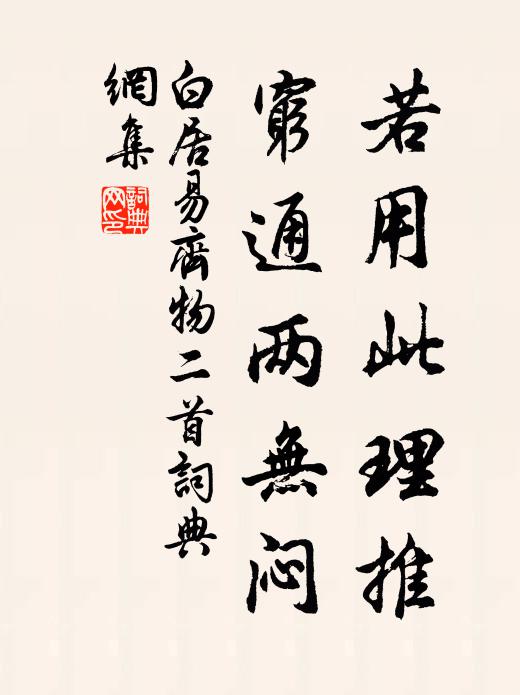 若用此理推
窮通两無闷
白居易齊物二首詞典
網集
詞典網印